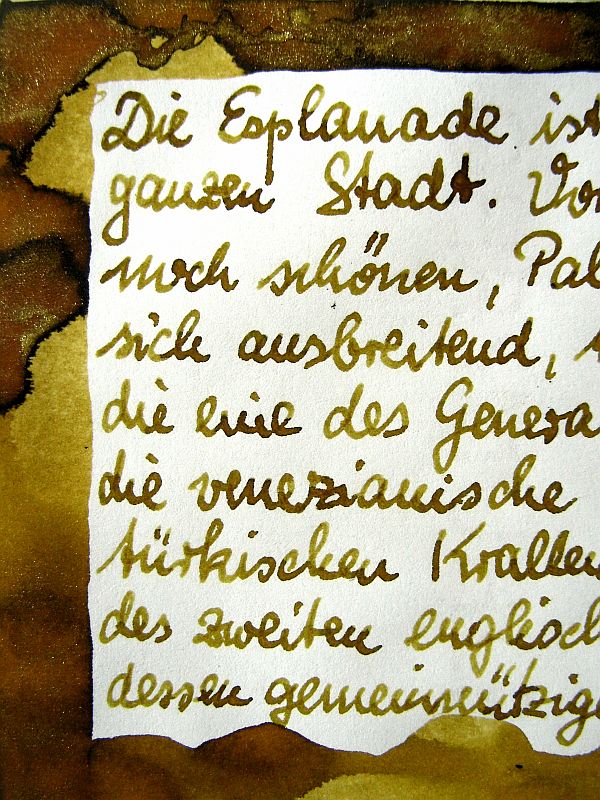 Die Esplanade ist
ganzen Stadt. Vor
noch schönen, Pal
sich ausbreitend,
die eine des Genera
die venezianische
türkischen Krallen
des zweiten englisch
dessen gemeinnützige